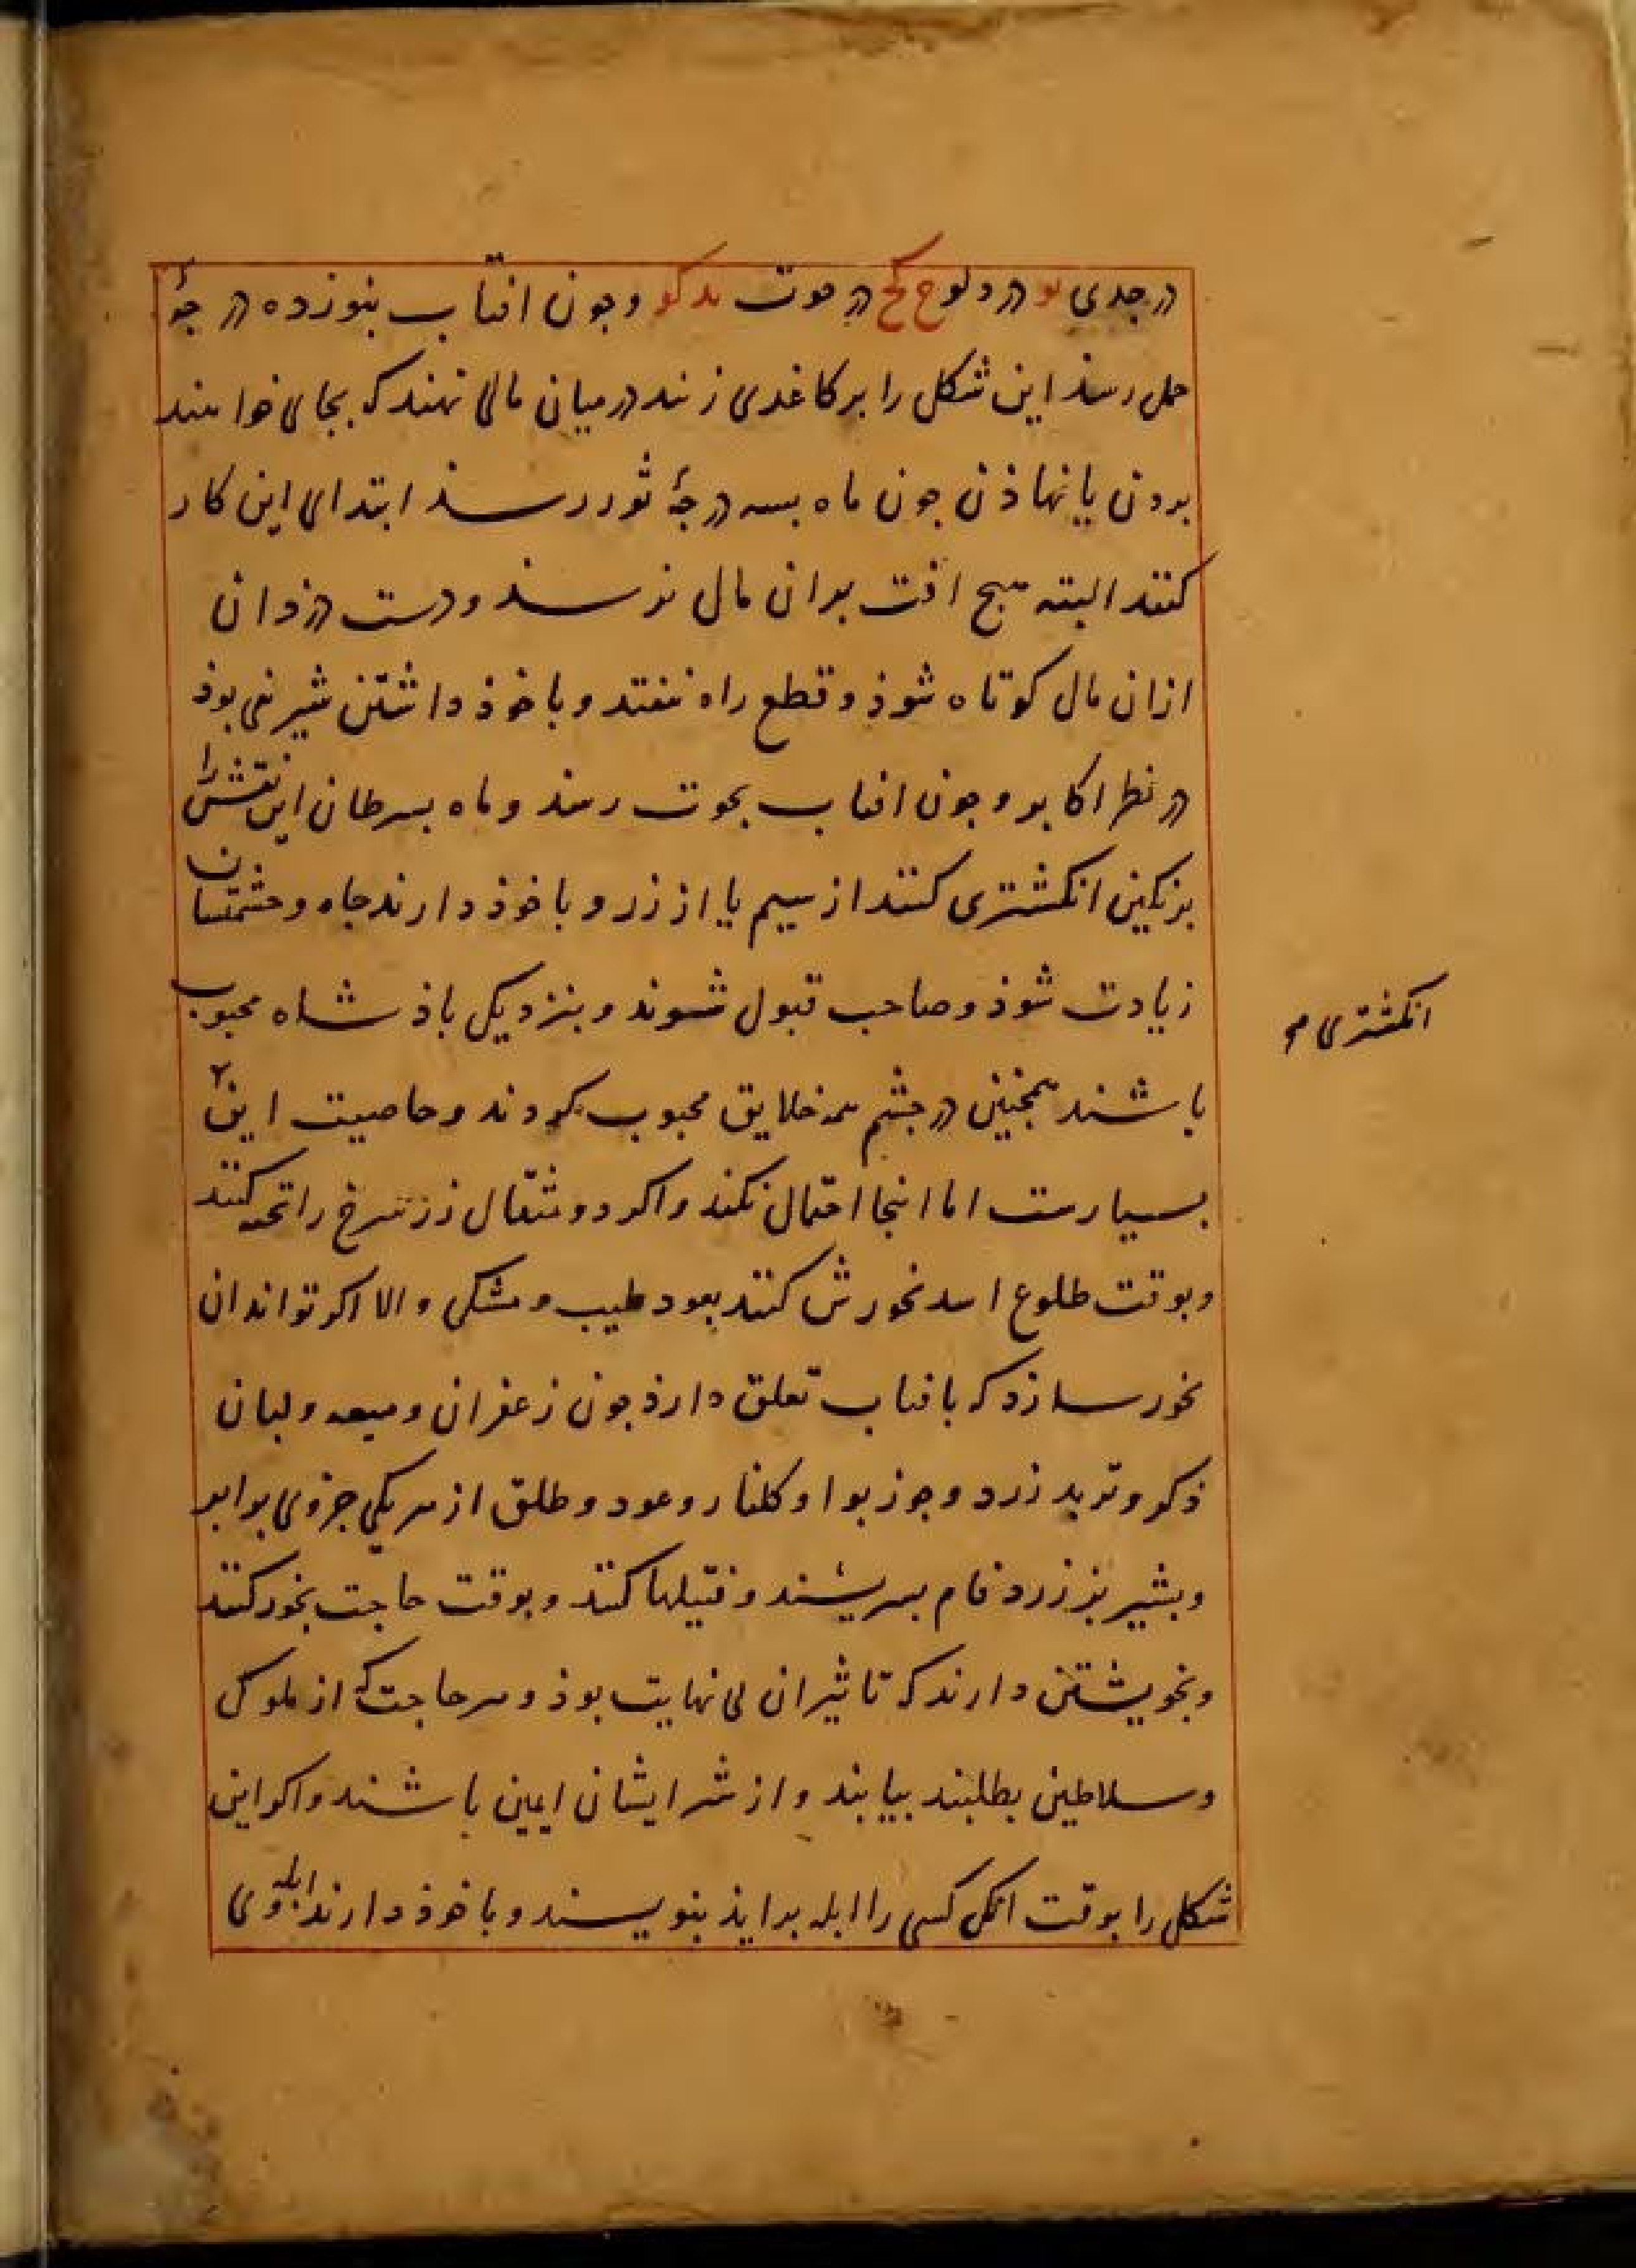 در جدی یو در دلو ح کح در حوت ید کو وجون افتاب بنوزده درجهٔ
حمل رسد این شکل را بر کاغدی زنند در میان مالی نهند که بجای خواهند
بردن یا نهاذن جون ماه بسه درجهٔ ثور رسد ابتدای این کار
کنند البته هیج افت بران مال نرسد و دست دزدان
ازان مال کوتاه شوذ و قطع راه نیفتد و با خوذ داشتن شیرفی بوذ
در نظر اکابر و جون افتاب بحوت رسد و ماه بسرطان این نقش را
بر نکین انکشتری کنند از سیم یا از زر و با خوذ دارند جاه و حشمتشان
زیادت شوذ و صاحب قبول شوند و بنزدیکی باذشاه محبوب
باشند همجنین در جشم همه خلایق محبوب کردند و خاصیت این ۲
بسیارست اما اینجا احتمال نکند و اکر دو مثقال زر سرخ را تخته کنند
و بوقت طلوع اسد بخورش کنند بعود طیب و مشکی و الا اکر تواند ان
بخور سازد که بافتاب تعلق دارذ جون زعفران و میعه و لبان
ذکر و تربد زرد و جوز بوا و کلنار و عود و طلق از هر یکی جزوی برابر
و بشیر بز زرد فام بسریشند و فتیلها کنند و بوقت حاجت بخور کنند
و بخویشتن دارند که تاثیر ان بی نهایت بوذ و هر حاجت که از ملوک
و سلاطین بطلبند بیابند و از شر ایشان ایمن باشند و اکر این
شکل را بوقت انک کسی را ابله برایذ بنویسند و با خوذ دارند ابله وی
انکشتری م